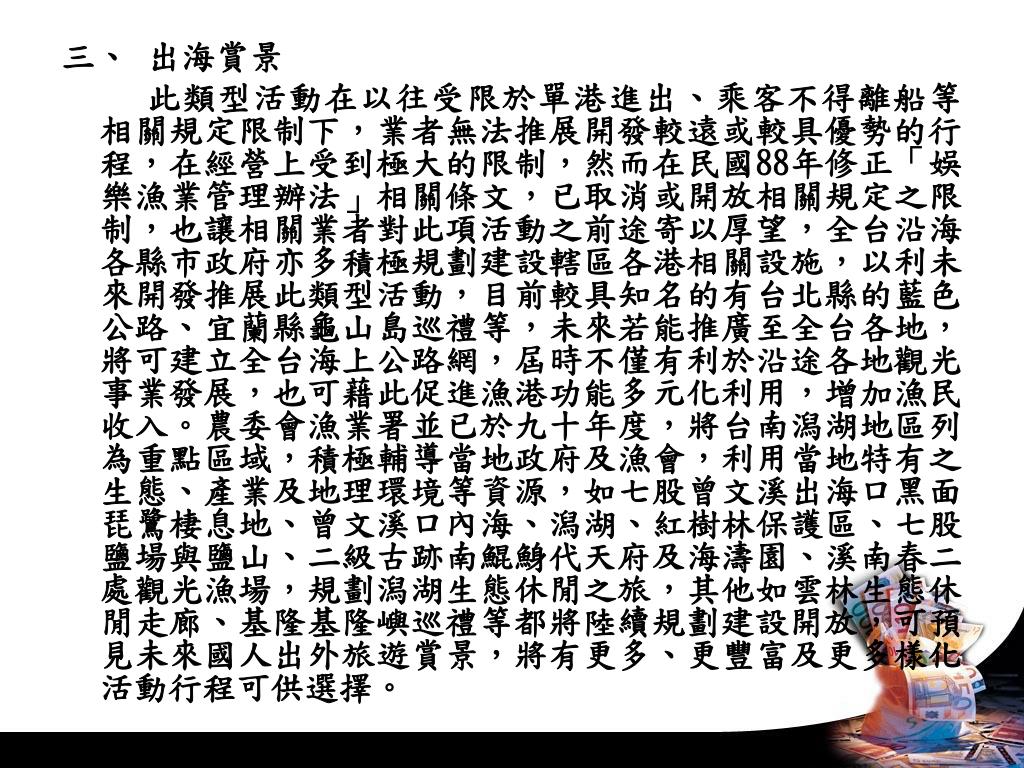 三、 出海賞景
此類型活動在以往受限於單港進出、乘客不得離船等
相關規定限制下，業者無法推展開發較遠或較具優勢的行
程，在經營上受到極大的限制，然而在民國88年修正「娛
樂漁業管理辦法」相關條文，已取消或開放相關規定之限
制，也讓相關業者對此項活動之前途寄以厚望，全台沿海
各縣市政府亦多積極規劃建設轄區各港相關設施，以利未
來開發推展此類型活動，目前較具知名的有台北縣的藍色
公路、宜蘭縣龜山島巡禮等，未來若能推廣至全台各地，
將可建立全台海上公路網，屆時不僅有利於沿途各地觀光
事業發展，也可藉此促進漁港功能多元化利用，增加漁民
收入。農委會漁業署並已於九十年度，將台南潟湖地區列
為重點區域，積極輔導當地政府及漁會，利用當地特有之
生態、產業及地理環境等資源，如七股曾文溪出海口黑面
琵鷺棲息地、曾文溪口內海、潟湖、紅樹林保護區、七股
鹽場與鹽山、二級古跡南鯤鯓代天府及海濤園、溪南春二
處觀光漁場，規劃潟湖生態休閒之旅，其他如雲林生態休
閒走廊、基隆基隆嶼巡禮等都將陸續規劃建設開放，可預
見未來國人出外旅遊賞景，將有更多、更豐富及更多樣化
活動行程可供選擇。